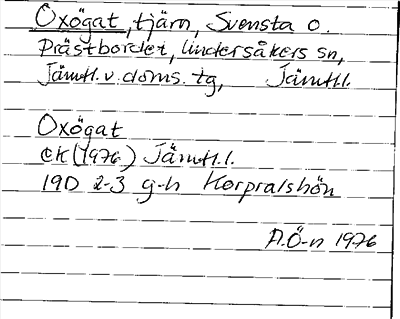 Oxögat, tjärn, Svensta o.
Prästbordet, Undersåkers sn,
Jämtl. v. doms. tg, Jämtl. l.
Oxögat
EK (1976) Jämtl. l.
19D 2-3 g-h Korpralshön
A.Ö-n 1976